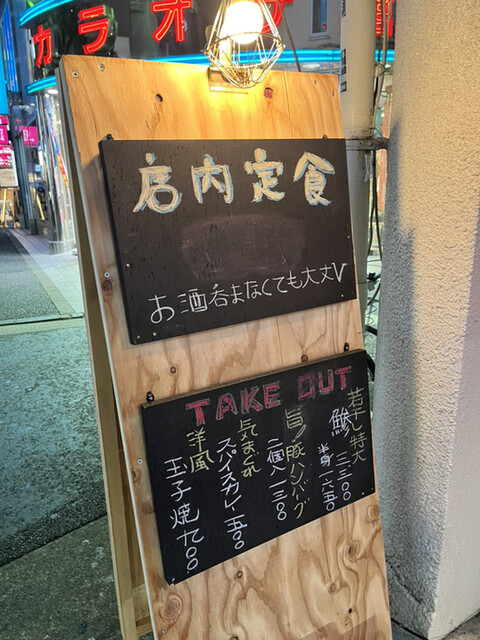 カラオケ
店内定食
お酒呑まなくても大丈V
TAKE OUT
若干し特大
鰺 三、三〇〇
半身 一、六五〇
旨!豚ハンバーグ
二個入 一三〇〇
気まぐれ
スパイスカレー 五〇〇
洋風
玉子焼 九〇〇